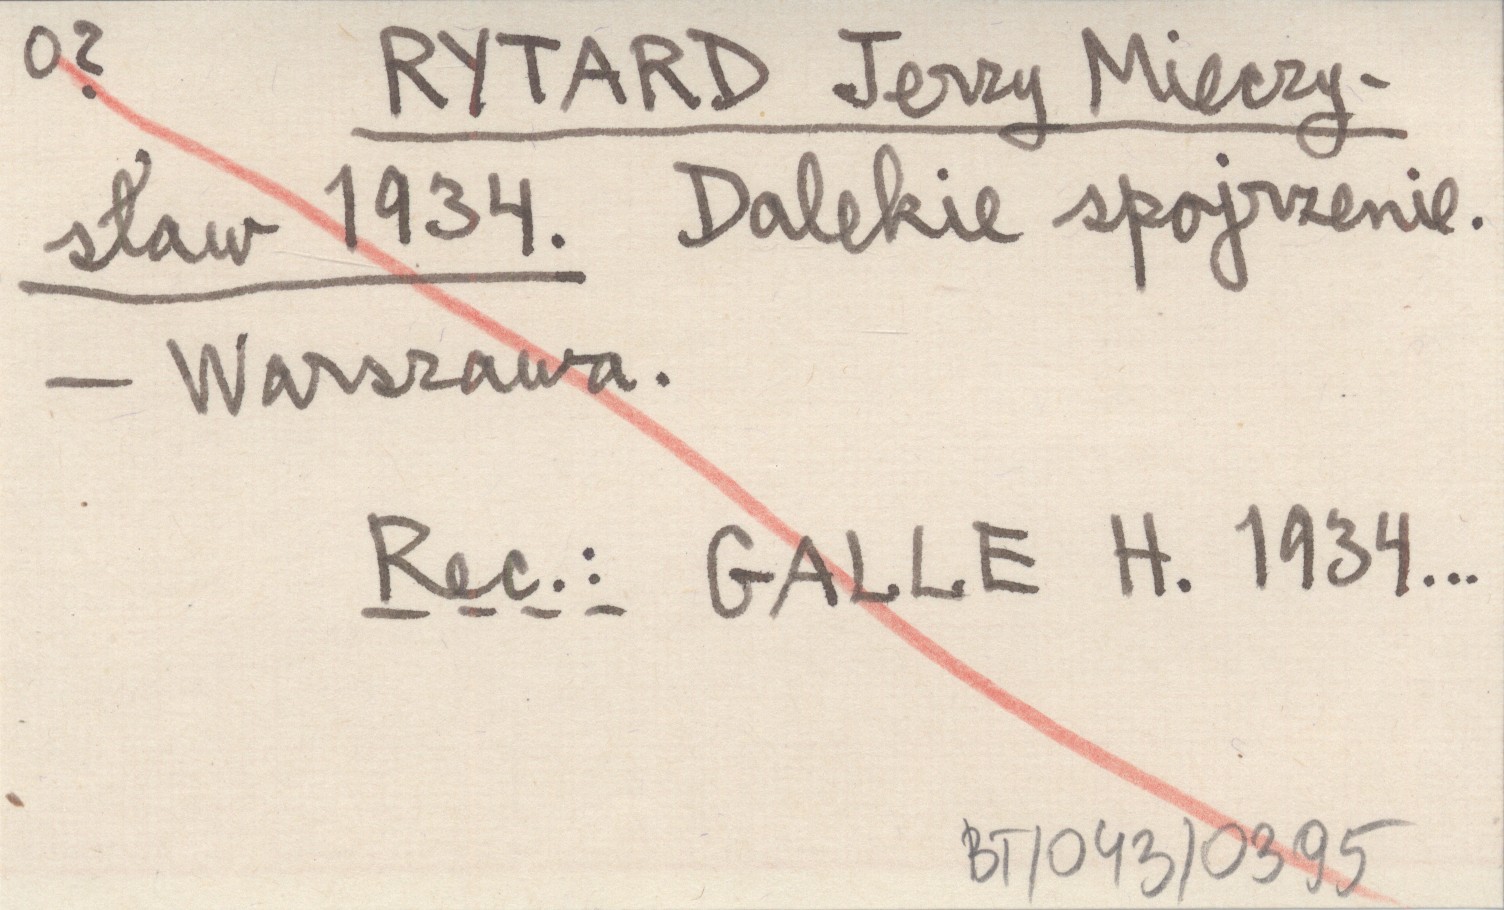 0?
RYTARD Jerzy Mieczy-
sław 1934. Dalekie spojrzenie.
— Warszawa.
Rec.: GALLE H. 1934...
BT/043/0395